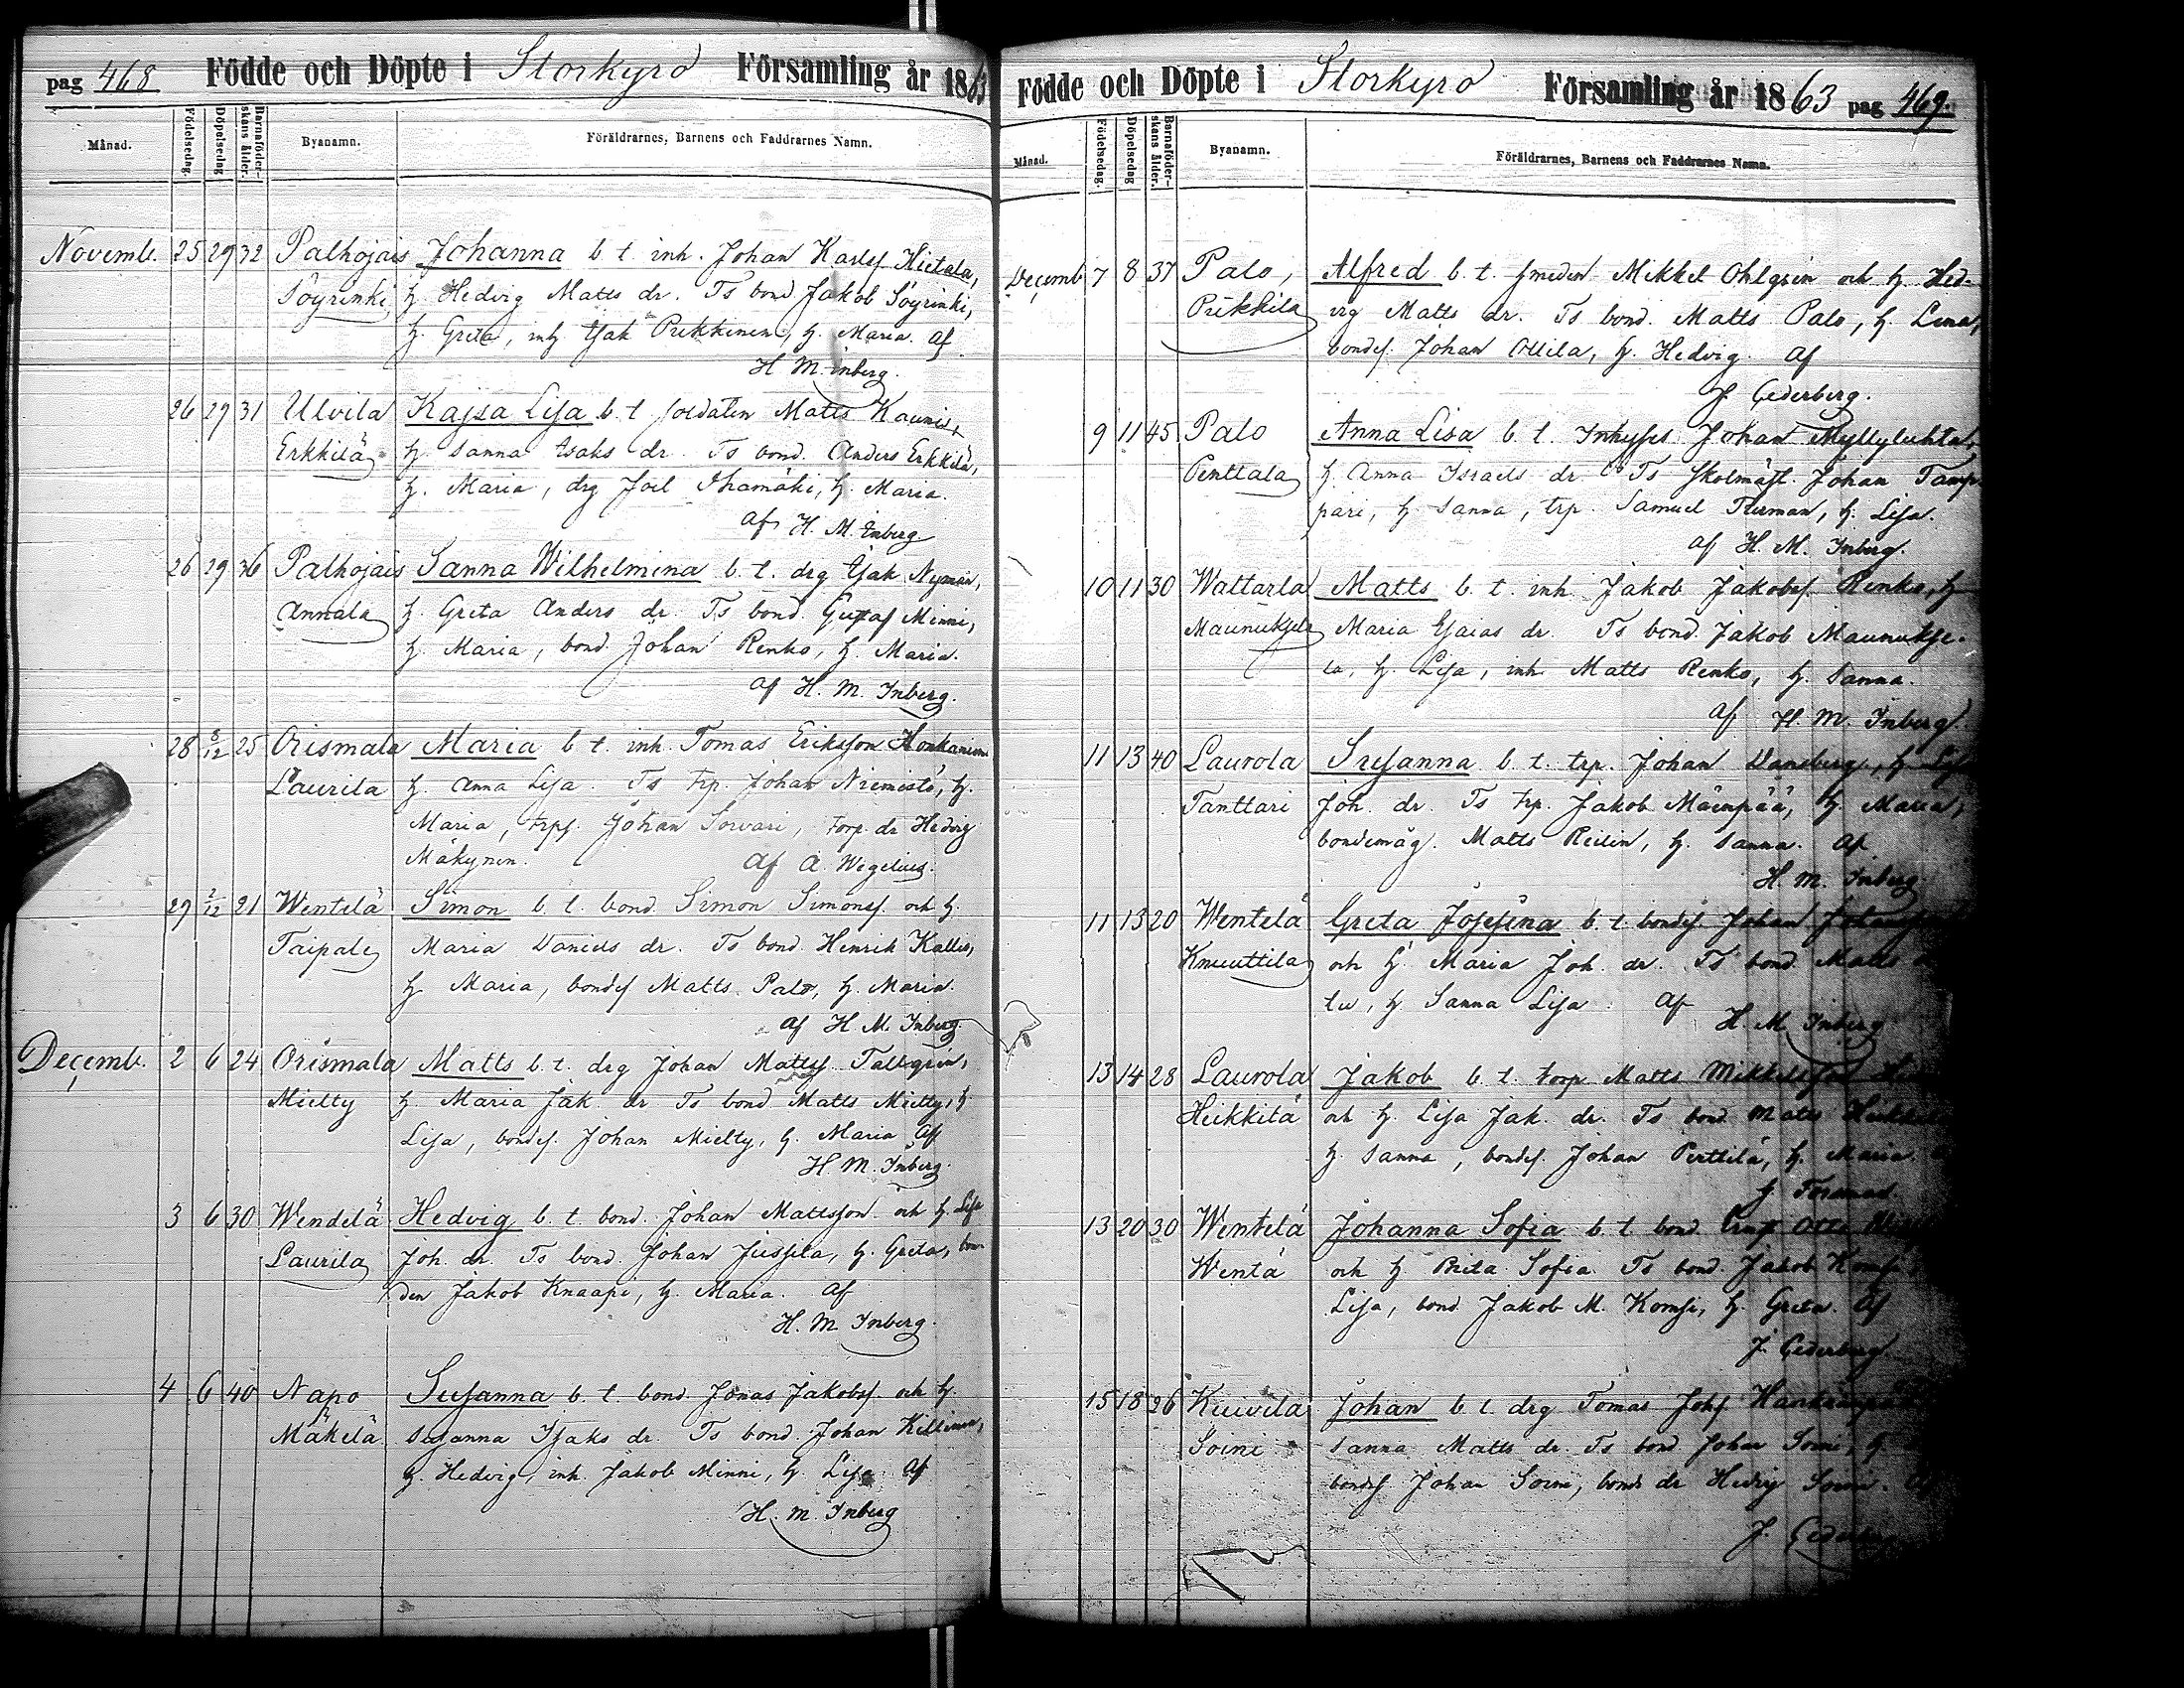 pag 468 Födde och Döpte i Storkyro Församling år 1863
Månad. Födelsedag. Döpelsedag Barnaföderskans ålder. Byanamn. Föräldrarnes, Barnens och Faddrarnes Namn.
Novemb. 25 29 32 Palhojais Johanna b. t. inh. Johan Karlsf. Hietala,
Söyrinki hj. Hedvig Matts dr. Ts bond. Jakob Söyrinki,
hj. Greta, inh Isak Pukkinen, hj. Maria. af
H M. inberg.
26 29 31 Ulvila Kajsa Lisa b. t. soldaten Matts Kaunis,
Erkkilä hj. Sanna Isaks dr. Ts bond. Anders Erkkilä,
hj. Maria, drg Joel Ihamäki, hj. Maria.
af H. M. Inberg
26 29 36 Palhojais Sanna Wilhelmina b. t. drg Isak Nyman,
Annala hj. Greta Anders dr. Ts bond. Gustaf Minni,
hj. Maria, bond. Johan Renko, hj. Maria.
af H. M. Inberg.
28 8/12 25 Orismala Maria b. t. inh. Tomas Eriksson Honkaniemi
Laurila hj. Anna Lisa. Ts trp. Johan Niemistö, hj.
Maria, trps. Johan Sorvari, torp. dr Hedvig
Mäkynen. af A. Wegelius.
29 2/12 21 Wentelä Simon b. t. bond. Simon Simonsf. och hj.
Taipale Maria Daniels dr. Ts bond. Henrik Kallis,
hj Maria, bondes Matts Palo, hj. Maria.
af H M. Inberg.
Decemb. 2 6 24 Orismala Matts b. t. drg Johan Mattsf. Tallgrén,
Mielty hj. Maria Jak. dr Ts bond Matts Mielty, hj
Lisa, bondes. Johan Mielty, hj. Maria af
H M. Inberg.
3 6 30 Wendelä Hedvig b. t. bond. Johan Mattsson och hj. Lisa
Laurila Joh. dr. Ts bond. Johan Jussila, hj. Greta, bon-
den Jakob Knaapi, hj. Maria. af
H. M Inberg.
4 6 40 Napo Susanna b. t. bond. Jonas Jakobsf. och hj.
Mäkelä Susanna Isaks dr. Ts bond. Johan Killinen,
hj. Hedvig, inh. Jakob Minni, hj. Lisa af
H. M. Inberg
Födde och Döpte i Storkyro Församling år 1863 pag 469.
Månad. Födelsedag. Döpelsedag Barnaföderskans ålder. Byanamn. Föräldrarnes, Barnens och Faddrarnes Namn.
Decemb 7 8 37 Palo, Alfred b. t. smeden Mikkel Ohlgrén och hj. Hed-
Pukkila vig Matts dr. Ts bond. Matts Palo, hj. Lena,
bondes. Johan Ollila, hj. Hedvig. af
J. Cederberg.
9 11 45 Palo Anna Lisa b. t. Inhyses Johan Myllyluhta,
Penttala hj. Anna Israels dr. Ts skolmäst. Johan Tamp-
pari, hj. Sanna, trp. Samuel, hj. Lisa.
af H. M. Inberg.
10 11 30 Wattarla Matts b. t. inh Jakob Jakobsf. Renko, hj
Maunuksela Maria Esaias dr. Ts bond. Jakob Maunukse-
la, hj. Lisa, inh. Matts Renko, hj. Sanna.
af H. M. Inberg.
11 13 40 Laurola Susanna b. t. trp. Johan Dansberg, hj. Lisa
Tanttari Joh. dr. Ts trp. Jakob Mäenpää, hj. Maria,
bondemåg. Matts Reilin, hj. Sanna. af
H. M. Inberg
11 13 20 Wentelä Greta Josefina b. t. bondes. Johan
Knuuttila och hj. Maria Joh. dr. Ts bond. Matts
hj. Sanna Lisa. af
H. M. Inberg
13 14 28 Laurola Jakob b. t. torp Matts Mikkelsson
Heikkilä och hj. Lisa Jak. dr. Ts bond Matts
hj. Sanna, bondes. Johan Perttilä, hj. Maria.
13 20 30 Wentelä Johanna Sofia b. t. bond. Otto
Wentä och hj. Brita Sofia. Ts bond. Jakob Komsi
Lisa, bond. Jakob M. Komsi, hj. Greta. af
J. Cederberg
15 18 26 Kuivila Johan b. t. drg Tomas Johs.
Soini Sanna Matts dr. Ts bond Johan Soini, hj.
bondes. Johan Soini, bonde dr Hedvig Soini. af
J. Cederberg